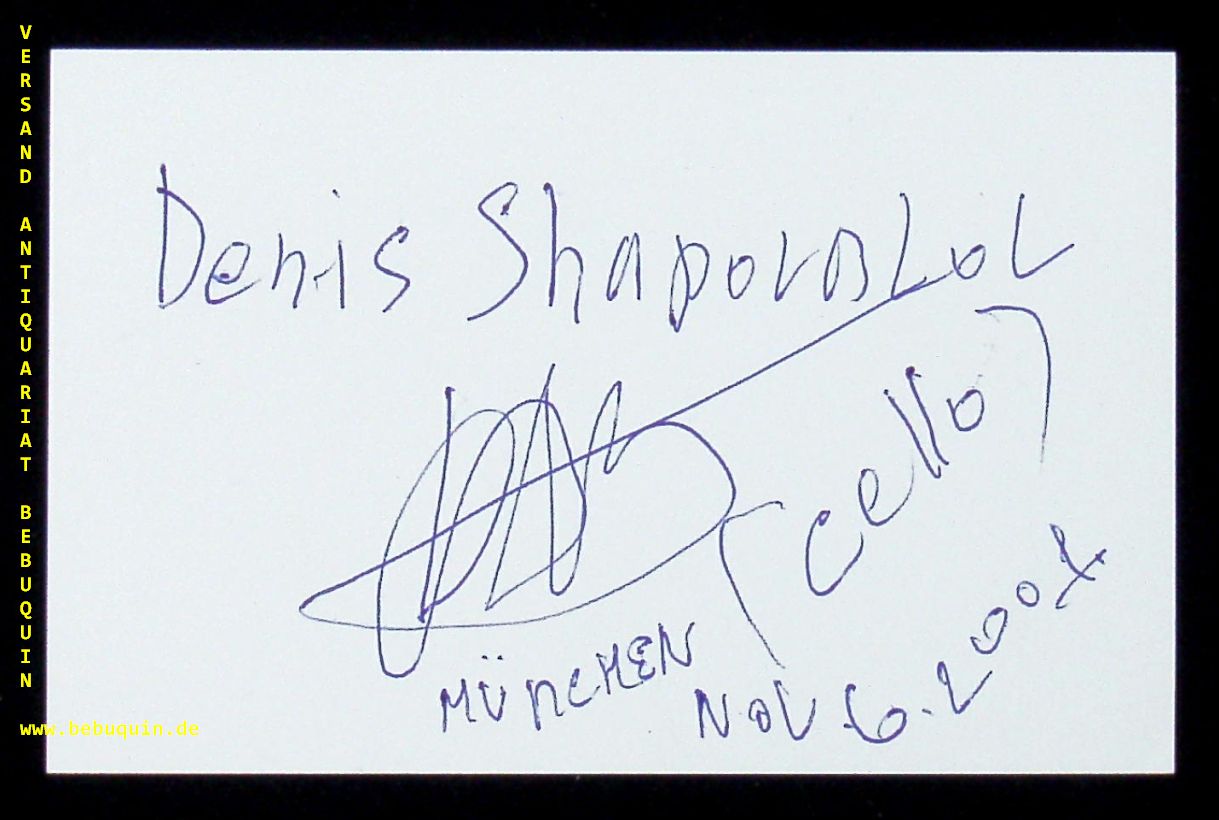 VERSAND ANTIQUARIAT BEBUQUIN
www.bebuquin.de
Denis Shapovalov
(cello)
MÜNCHEN
NOV 6. 2001